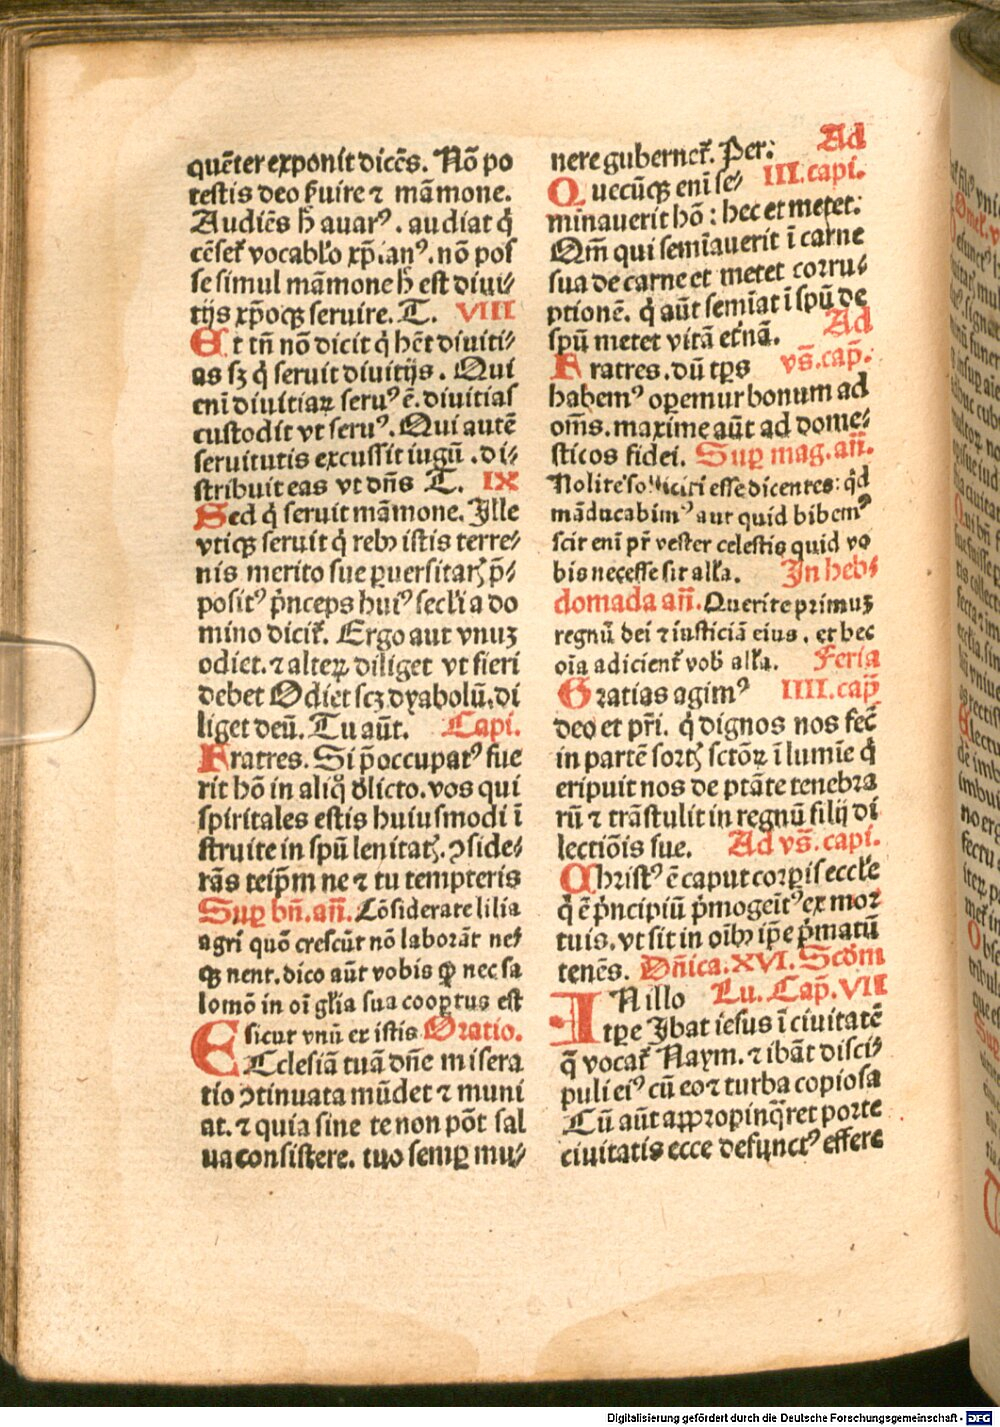 quēter exponit dicēs. Nō po
testis deo ẜuire ⁊ māmone.
Audiēs h̄ auarꝰ. audiat q̇
cēset᷑ vocabl̓o xp̄ianꝰ. nō pos
se simul māmone h̄ est diui⸗
tijs xp̄oqꝫ seruire. T. VIII
Et tn̄ nō dicit q̇ hēt diuiti⸗
as sꝫ q̇ seruit diuitijs. Qui
eni diuitiaꝝ seruꝰ ē. diuitias
custodit vt seruꝰ. Qui autē
seruitutis excussit iugū. di⸗
stribuit eas vt dn̄s T. IX
Sed q̇ seruit māmone. Ille
vtiqꝫ seruit q̇ rebꝫ istis terre⸗
nis merito sue ꝑuersitatꝭ p̄⸗
positꝰ p̄nceps huiꝰ secl̓i a do
mino dicit᷑. Ergo aut vnuꝫ
odiet. ⁊ alteꝝ diliget vt fieri
debet Odiet scꝫ dyabolū. di
liget deū. Tu aūt. Capi.
Fratres. Si p̄occupatꝰ fue
rit hō in aliq̊ dl̓icto. vos qui
spiritales estis huiusmodi ī
struite in spū lenitatꝭ. ꝯside⸗
rās teip̄m ne ⁊ tu tempteris
Suꝑ bn̄. an̄. Cōsiderate lilia
agri quō crescūt nō laborāt ne⸗
qꝫ nent. dico aūt vobis ꝙ nec sa
lomō in oī gl̓ia sua cooꝑtus est
sicut vnū ex istis Oratio.
EEclesiā tuā dn̄e misera
tio ꝯtinuata mūdet ⁊ muni
at. ⁊ quia sine te non pōt sal
ua consistere. tuo semꝑ mu⸗
nere gubernet᷑. Per: Ad
Quecūqꝫ eni se⸗ III. capi.
minauerit hō: hec et metet.
Qm̄ qui semīauerit ī carne
sua de carne et metet corru⸗
ptionē. q̇ aūt semīat ī spū de
spū metet vitā et̓nā. Ad
Fratres. dū tꝑs vs̄. cap̄.
habemꝰ operemur bonum ad
om̄s. maxime aūt ad dome⸗
sticos fidei. Suꝑ mag. an̄.
Nolite solliciti esse dicentes: qd̓
māducabimꝰ aut quid bibemꝰ
scit eni pr̄ vester celestis quid vo
bis necesse sit all̓a. In heb⸗
domada an̄. Querite primuꝫ
regnū dei ⁊ iusticiā eius. et hec
oīa adicient᷑ vob̓ all̓a. Feria
Gratias agimꝰ IIII. cap̄
deo et pr̄i. q̇ dignos nos fec̄
in partē sortꝭ sctōꝝ ī lumīe q̇
eripuit nos de ptāte tenebra
rū ⁊ trāstulit in regnū filij di
lectiōis sue. Ad vs̄. capi.
Christꝰ ē caput corꝑis eccl̓e
q̇ ē p̄ncipiū p̄mogeīt̓ꝰ ex mor
tuis. vt sit in oībꝫ ip̄e p̄matū
tenēs. Dn̄ica. XVI. Scd̓m
IN illo Lu. Cap̄. VII
tꝑe Ibat iesus ī ciuitatē
q̄ vocat᷑ Naym. ⁊ ibāt disci⸗
puli eiꝰ cū eo ⁊ turba copiosa
Cū aūt appropinq̄ret porte
ciuitatis ecce defunctꝰ effere
Digitalisierung gefördert durch die Deutsche Forschungsgemeinschaft - DFG